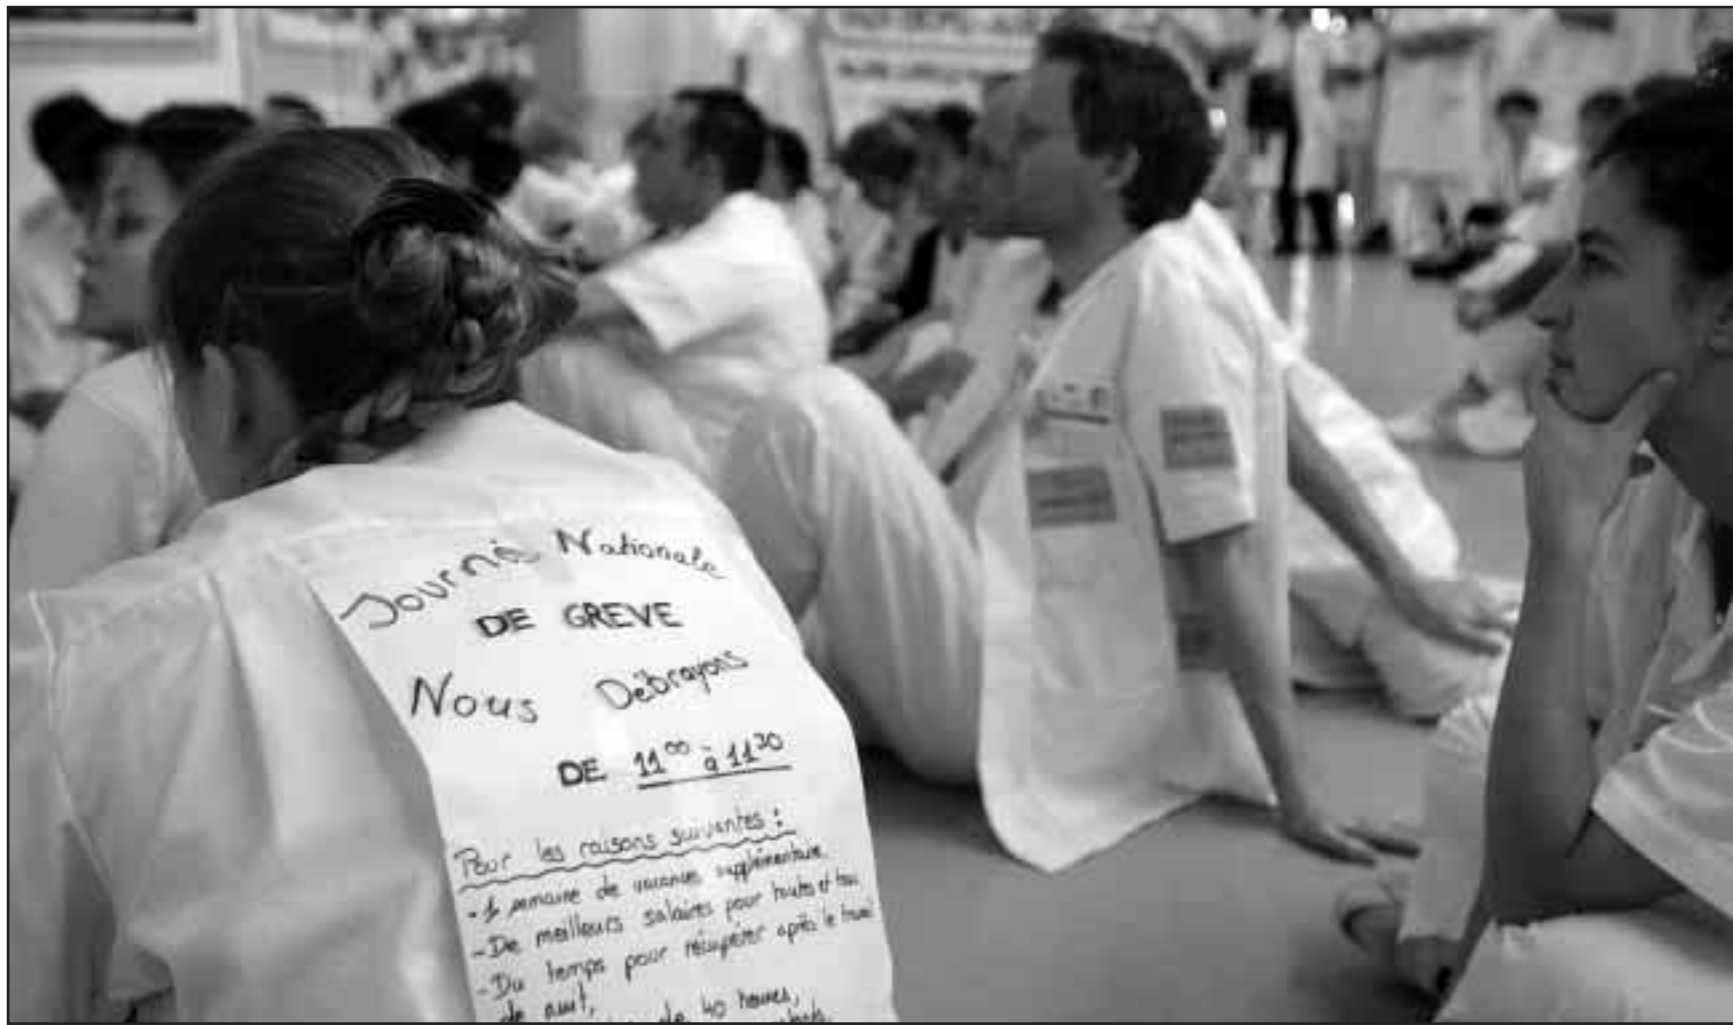 Journée Nationale
DE GREVE
Nous Débrayons
DE 11⁰⁰ à 11³⁰
Pour les raisons suivantes :
- 1 semaine de vacances supplémentaire
- De meilleurs salaires pour toutes et tous
- Du temps pour récupérer après le travail
de nuit,
de 40 heures,